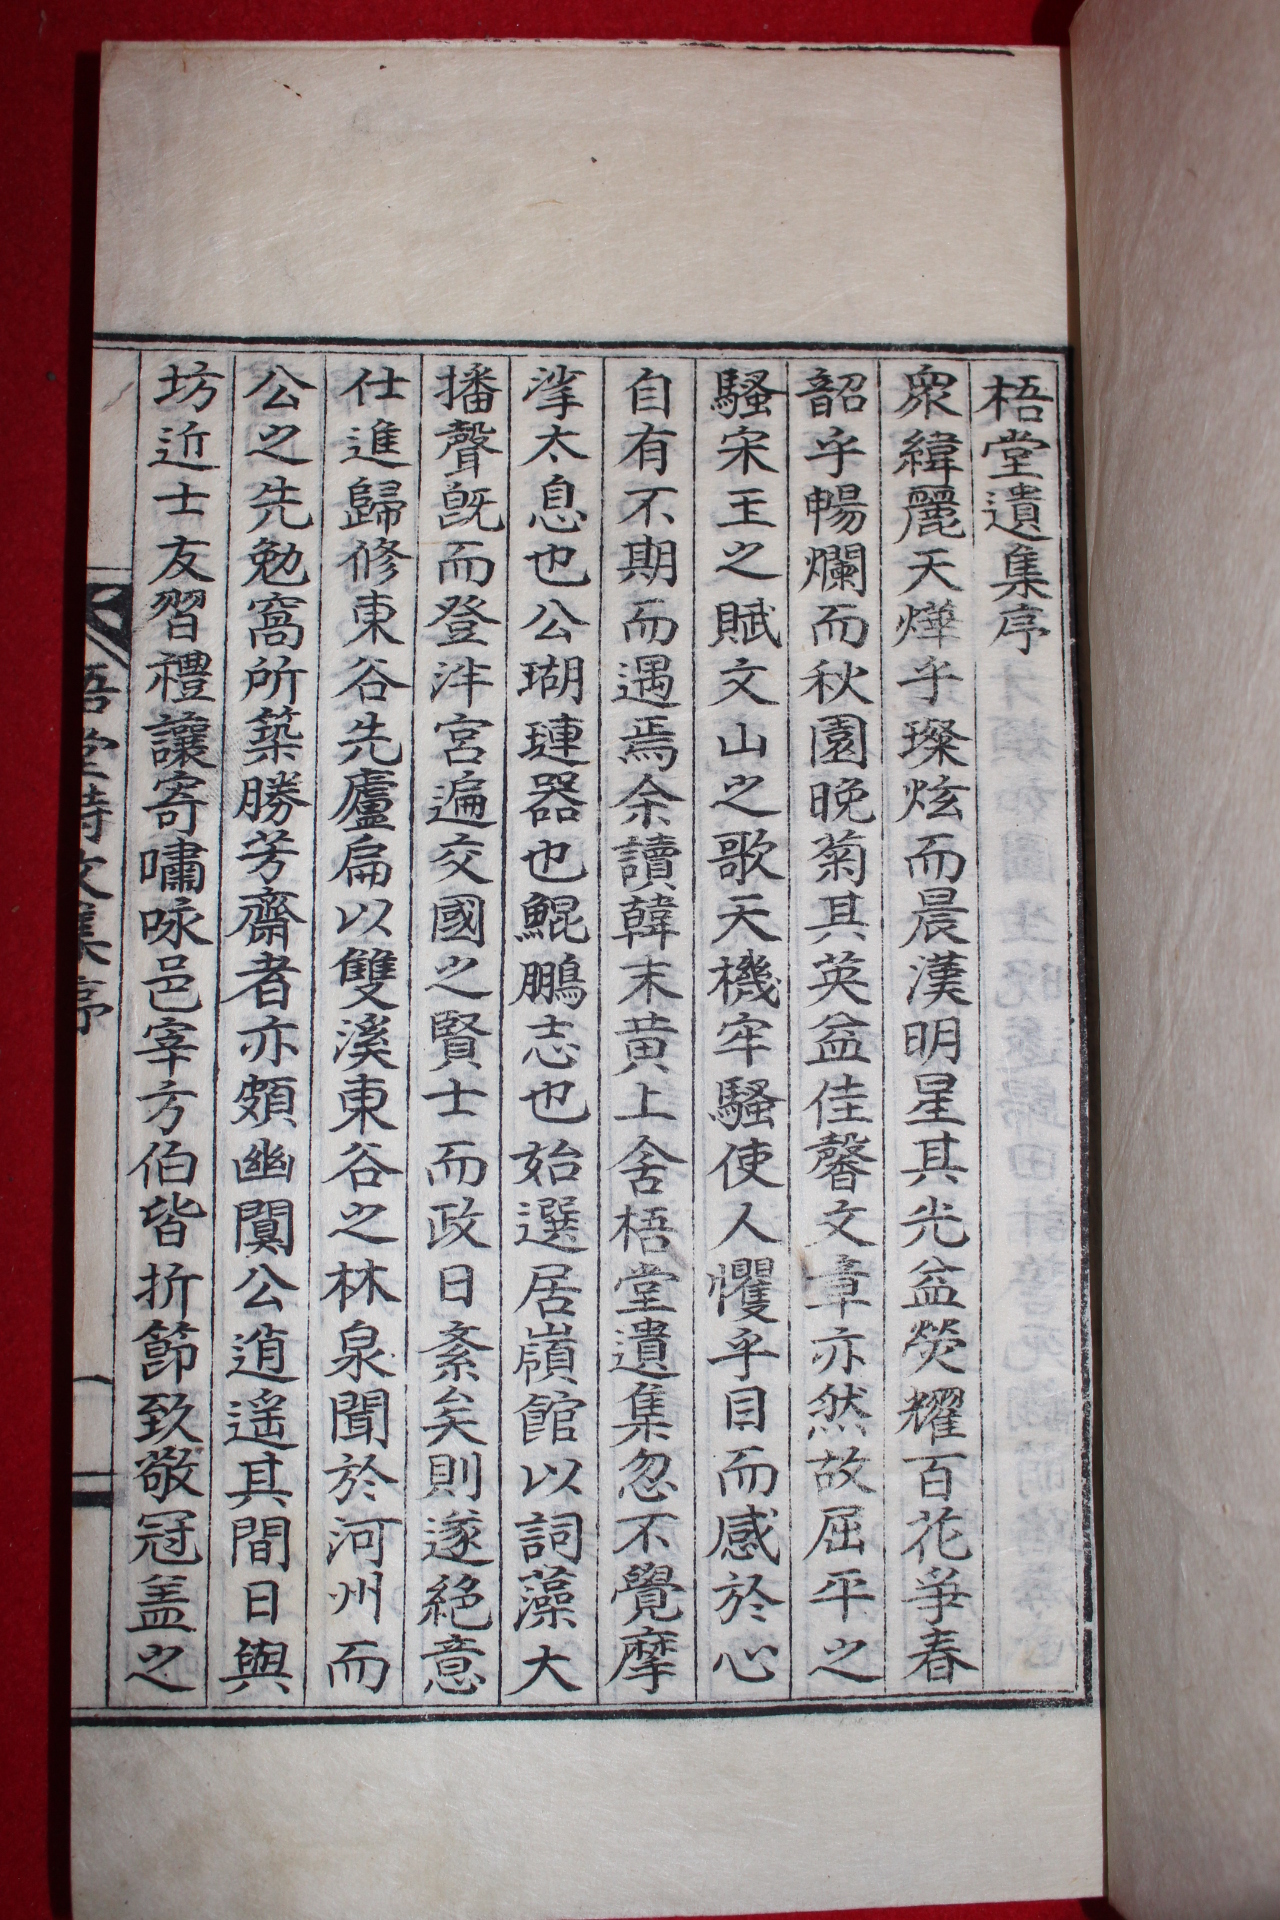 梧堂遺集序
衆緯麗天燁乎璨炫而晨漢明星其光益熒耀百花爭春
韶乎暢爛而秋園晩菊其英益佳馨文章亦然故屈平之
騷宋玉之賦文山之歌天機牢騷使人懼乎目而感於心
自有不期而遇焉余讀韓末黃上舍梧堂遺集忽不覺摩
挲太息也公瑚璉器也鯤鵬志也始選居嶺館以詞藻大
播聲旣而登泮宮遍交國之賢士而政日紊矣則遂絶意
仕進歸修東谷先廬扁以雙溪東谷之林泉聞於河州而
公之先勉窩所築勝芳齋者亦頗幽闃公逍遙其間日與
坊近士友習禮讓寄嘯咏邑宰方伯皆折節致敬冠盖之
梧堂詩文集序
一